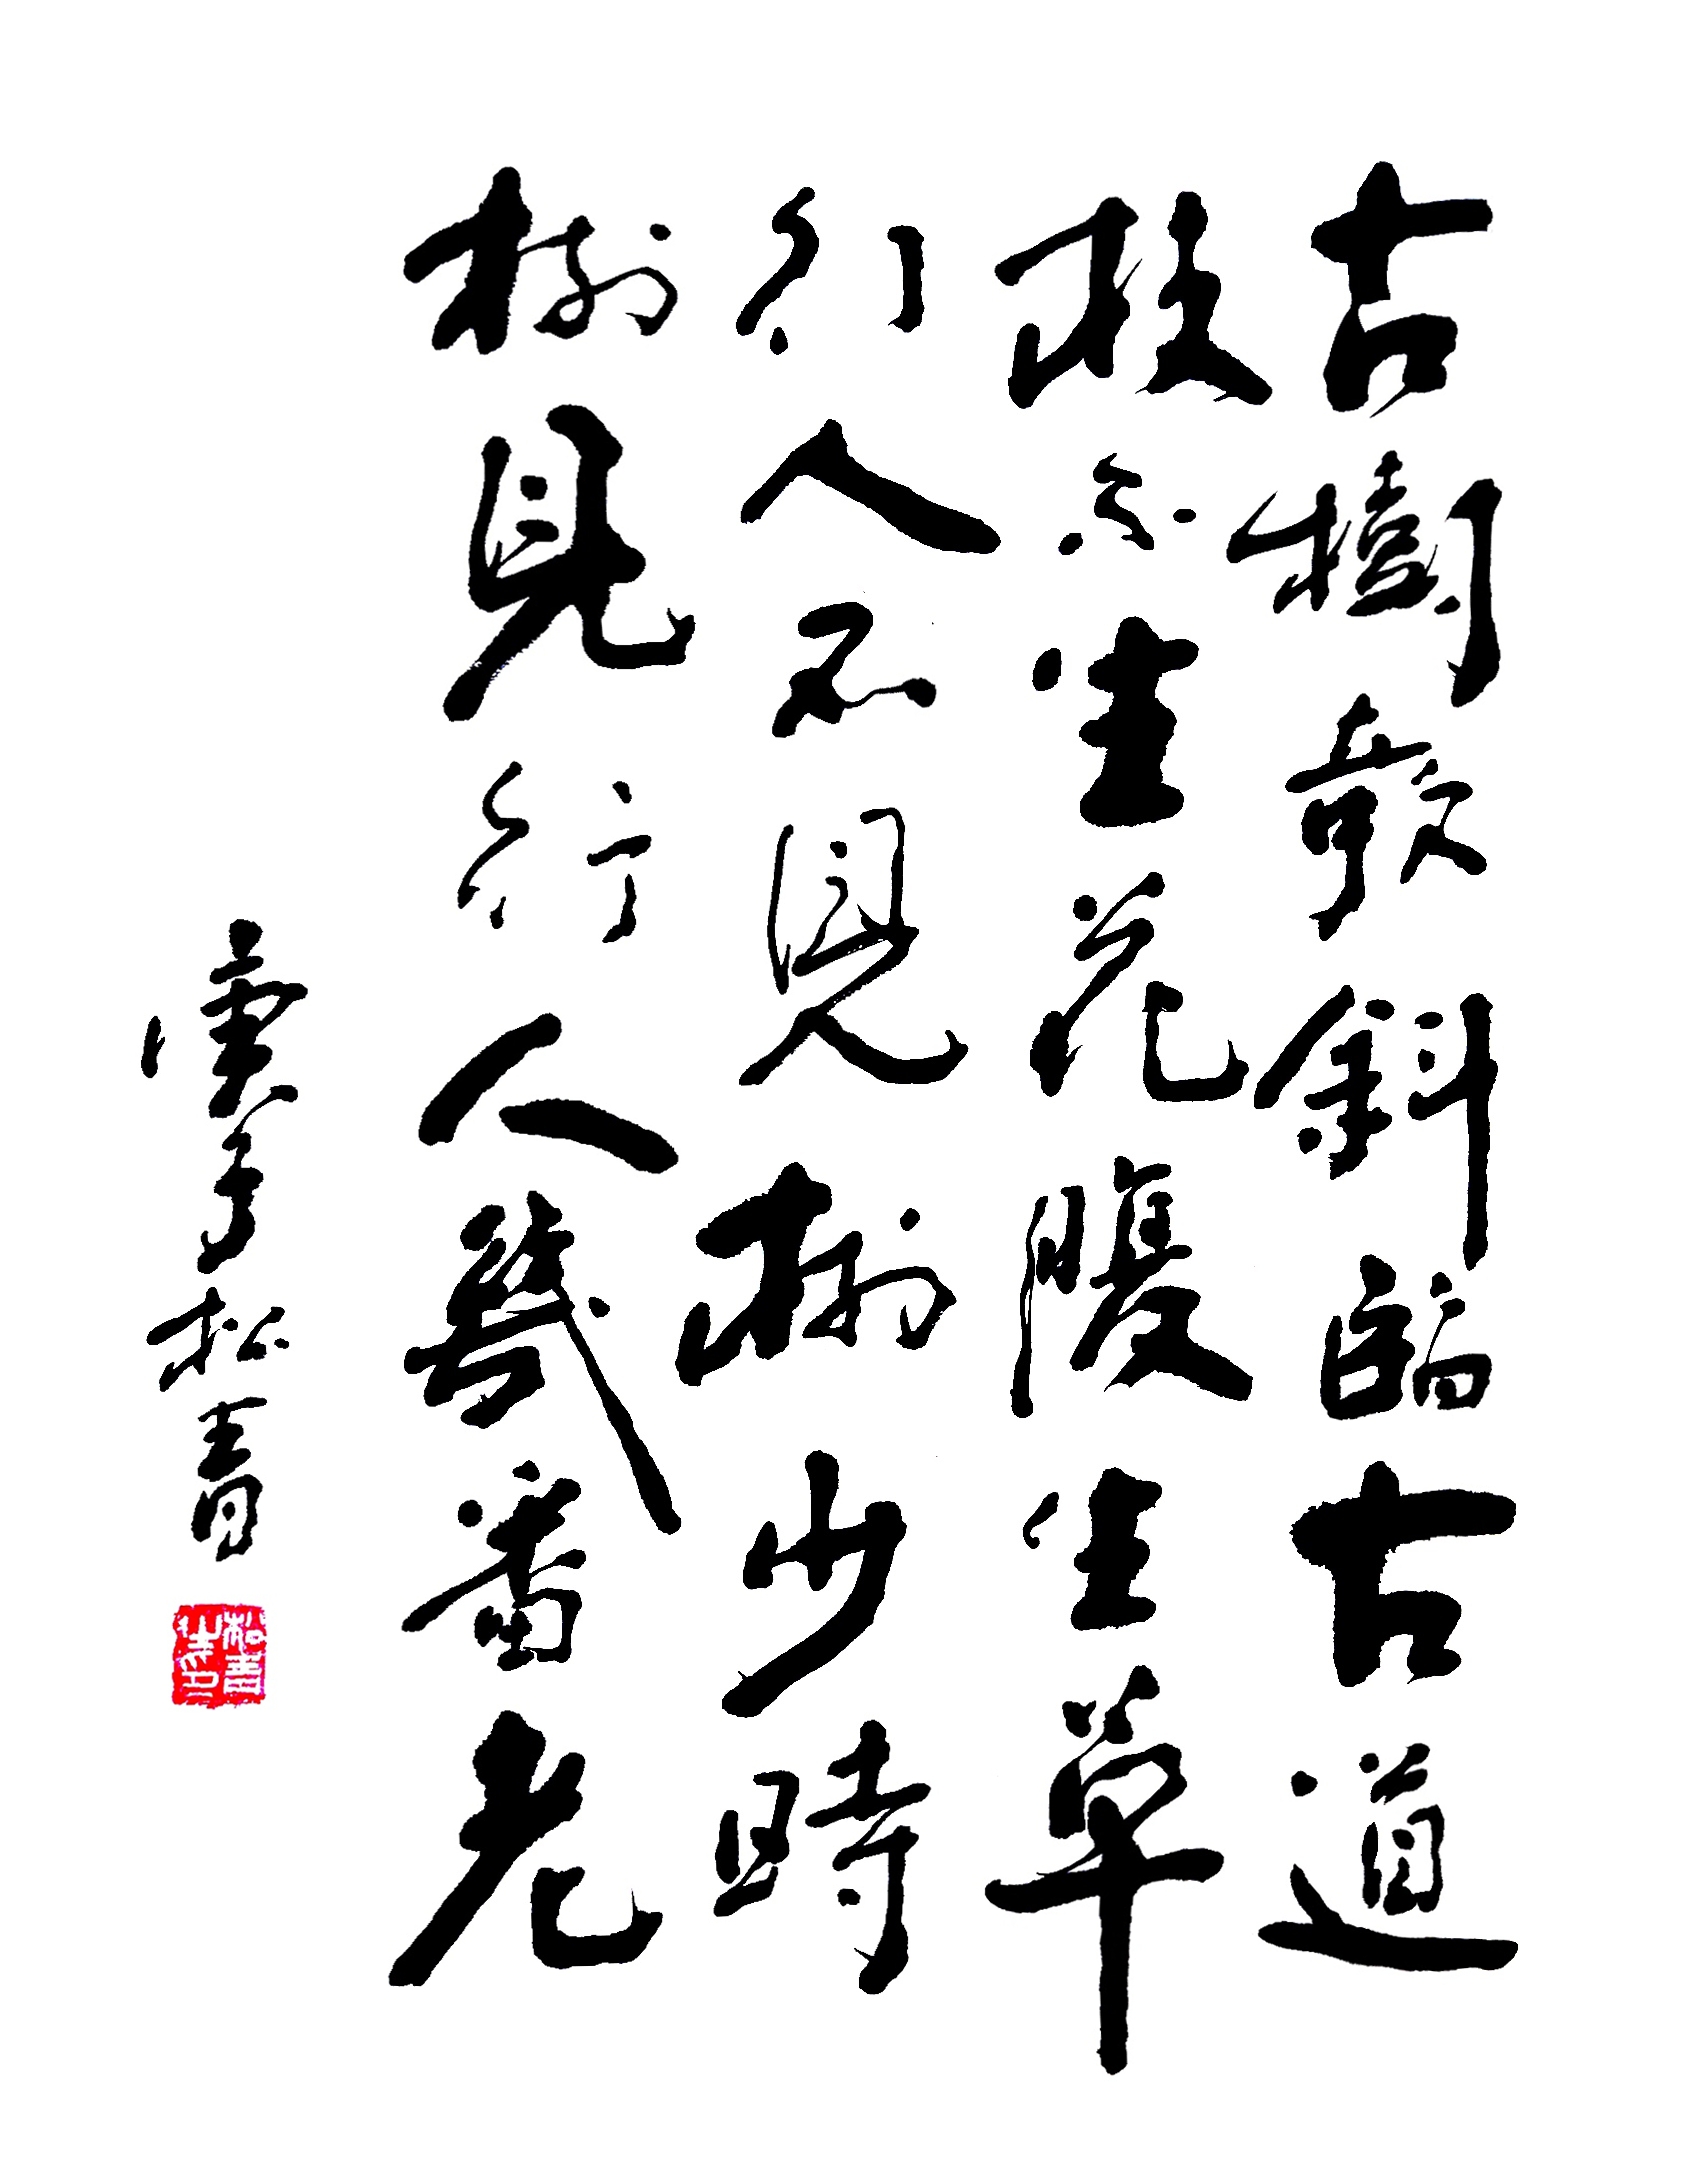 古樹欹斜臨古道
枝不生花腹生草
行人不見樹少時
樹見行人幾番老
庚子松青